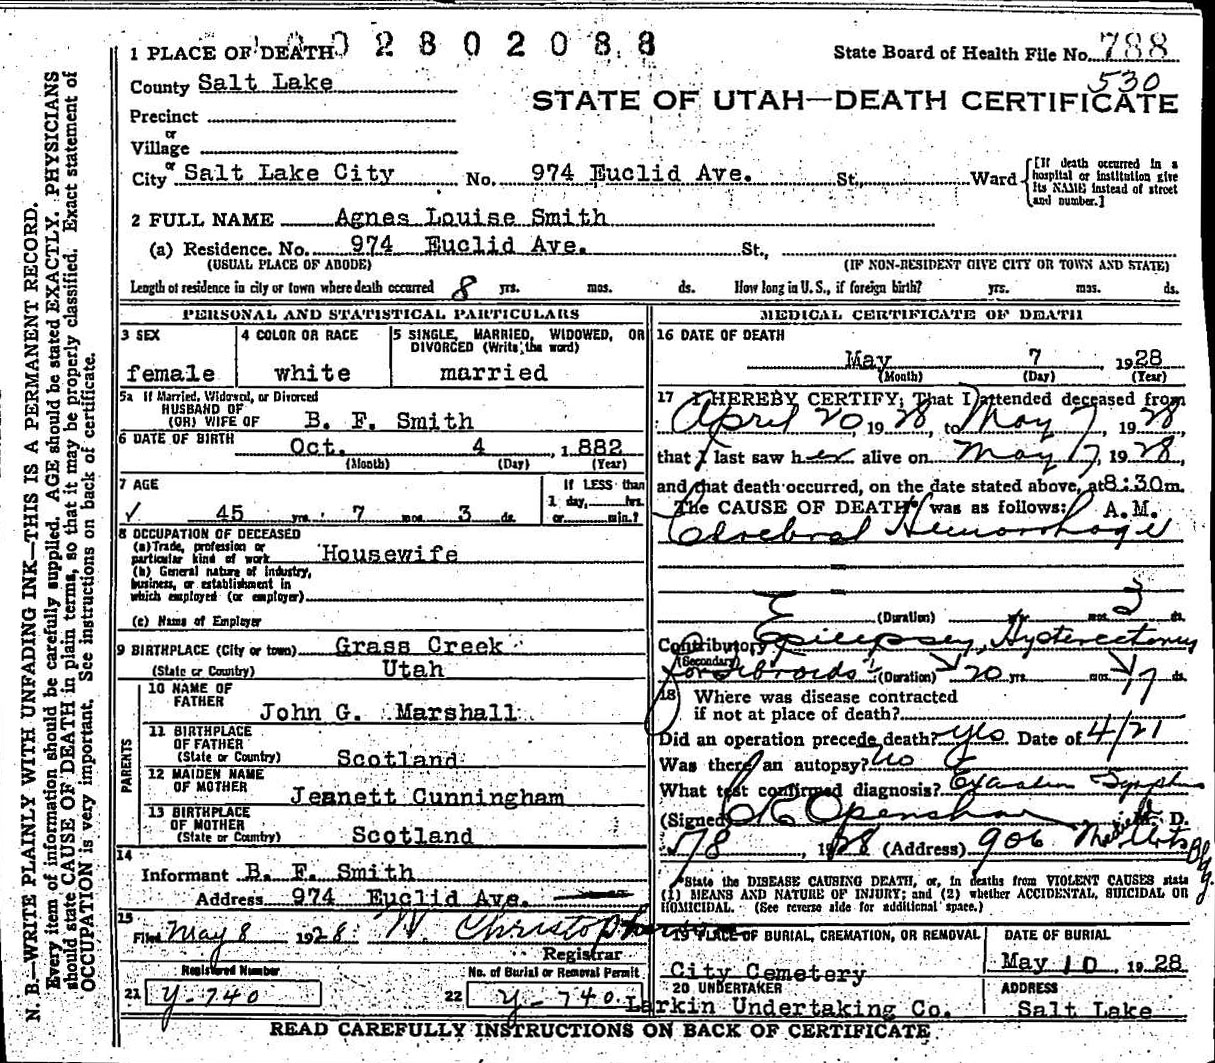 1 PLACE OF DEATH 0 2 8 0 2 0 8 8 State Board of Health File No. 788
County Salt Lake 530
STATE OF UTAH—DEATH CERTIFICATE
Precinct
or
Village
or
City Salt Lake City No. 974 Euclid Ave. St., Ward [If death occurred in a hospital or institution give its NAME instead of street and number.]
2 FULL NAME Agnes Louise Smith
(a) Residence. No. 974 Euclid Ave. St.,
(USUAL PLACE OF ABODE) (IF NON-RESIDENT GIVE CITY OR TOWN AND STATE)
Length of residence in city or town where death occurred 8 yrs. mos. ds. How long in U. S., if foreign birth? yrs. mos. ds.
PERSONAL AND STATISTICAL PARTICULARS
3 SEX
female
4 COLOR OR RACE
white
5 SINGLE, MARRIED, WIDOWED, OR
DIVORCED (Write the word)
married
5a If Married, Widowed, or Divorced
HUSBAND OF
(OR) WIFE OF B. F. Smith
6 DATE OF BIRTH
Oct. 4, 1882
(Month) (Day) (Year)
7 AGE
✓ 45 yrs. 7 mos. 3 ds.
If LESS than
1 day, hrs.
or min.?
8 OCCUPATION OF DECEASED
(a) Trade, profession or
particular kind of work Housewife
(b) General nature of industry,
business, or establishment in
which employed (or employer)
(c) Name of Employer
9 BIRTHPLACE (City or town) Grass Creek
(State or Country) Utah
PARENTS
10 NAME OF
FATHER
John G. Marshall
11 BIRTHPLACE
OF FATHER
(State or Country) Scotland
12 MAIDEN NAME
OF MOTHER
Jeanett Cunningham
13 BIRTHPLACE
OF MOTHER
(State or Country) Scotland
14
Informant B. F. Smith
Address 974 Euclid Ave.
15
Filed May 8 1928
Registrar
Registered Number No. of Burial or Removal Permit
21 Y-740 22 Y-740
MEDICAL CERTIFICATE OF DEATH
16 DATE OF DEATH
May 7 1928
(Month) (Day) (Year)
17 I HEREBY CERTIFY, That I attended deceased from
April 20, 1928, to May 7, 1928
that I last saw her alive on May 7, 1928,
and that death occurred, on the date stated above, at 8:30 m.
The CAUSE OF DEATH was as follows: A.M.
Cerebral Hemorrhage
(Duration) yrs. mos. 3 ds.
Contributory Epilepsey, Hysterectomy
(Secondary) for fibroids (Duration) 20 yrs. mos. 17 ds.
18 Where was disease contracted
if not at place of death?
Did an operation precede death? yes Date of 4/21
Was there an autopsy? No
What test confirmed diagnosis?
(Signed) Openshaw M. D.
1928 (Address) 906 Bldg.
State the DISEASE CAUSING DEATH, or, in deaths from VIOLENT CAUSES state
(1) MEANS AND NATURE OF INJURY; and (2) whether ACCIDENTAL, SUICIDAL OR
HOMICIDAL. (See reverse side for additional space.)
19 PLACE OF BURIAL, CREMATION, OR REMOVAL
City Cemetery
DATE OF BURIAL
May 10 1928
20 UNDERTAKER
Larkin Undertaking Co.
ADDRESS
Salt Lake
READ CAREFULLY INSTRUCTIONS ON BACK OF CERTIFICATE
N. B.—WRITE PLAINLY WITH UNFADING INK—THIS IS A PERMANENT RECORD.
Every item of information should be carefully supplied. AGE should be stated EXACTLY. PHYSICIANS
should state CAUSE OF DEATH in plain terms, so that it may be properly classified. Exact statement of
OCCUPATION is very important. See instructions on back of certificate.